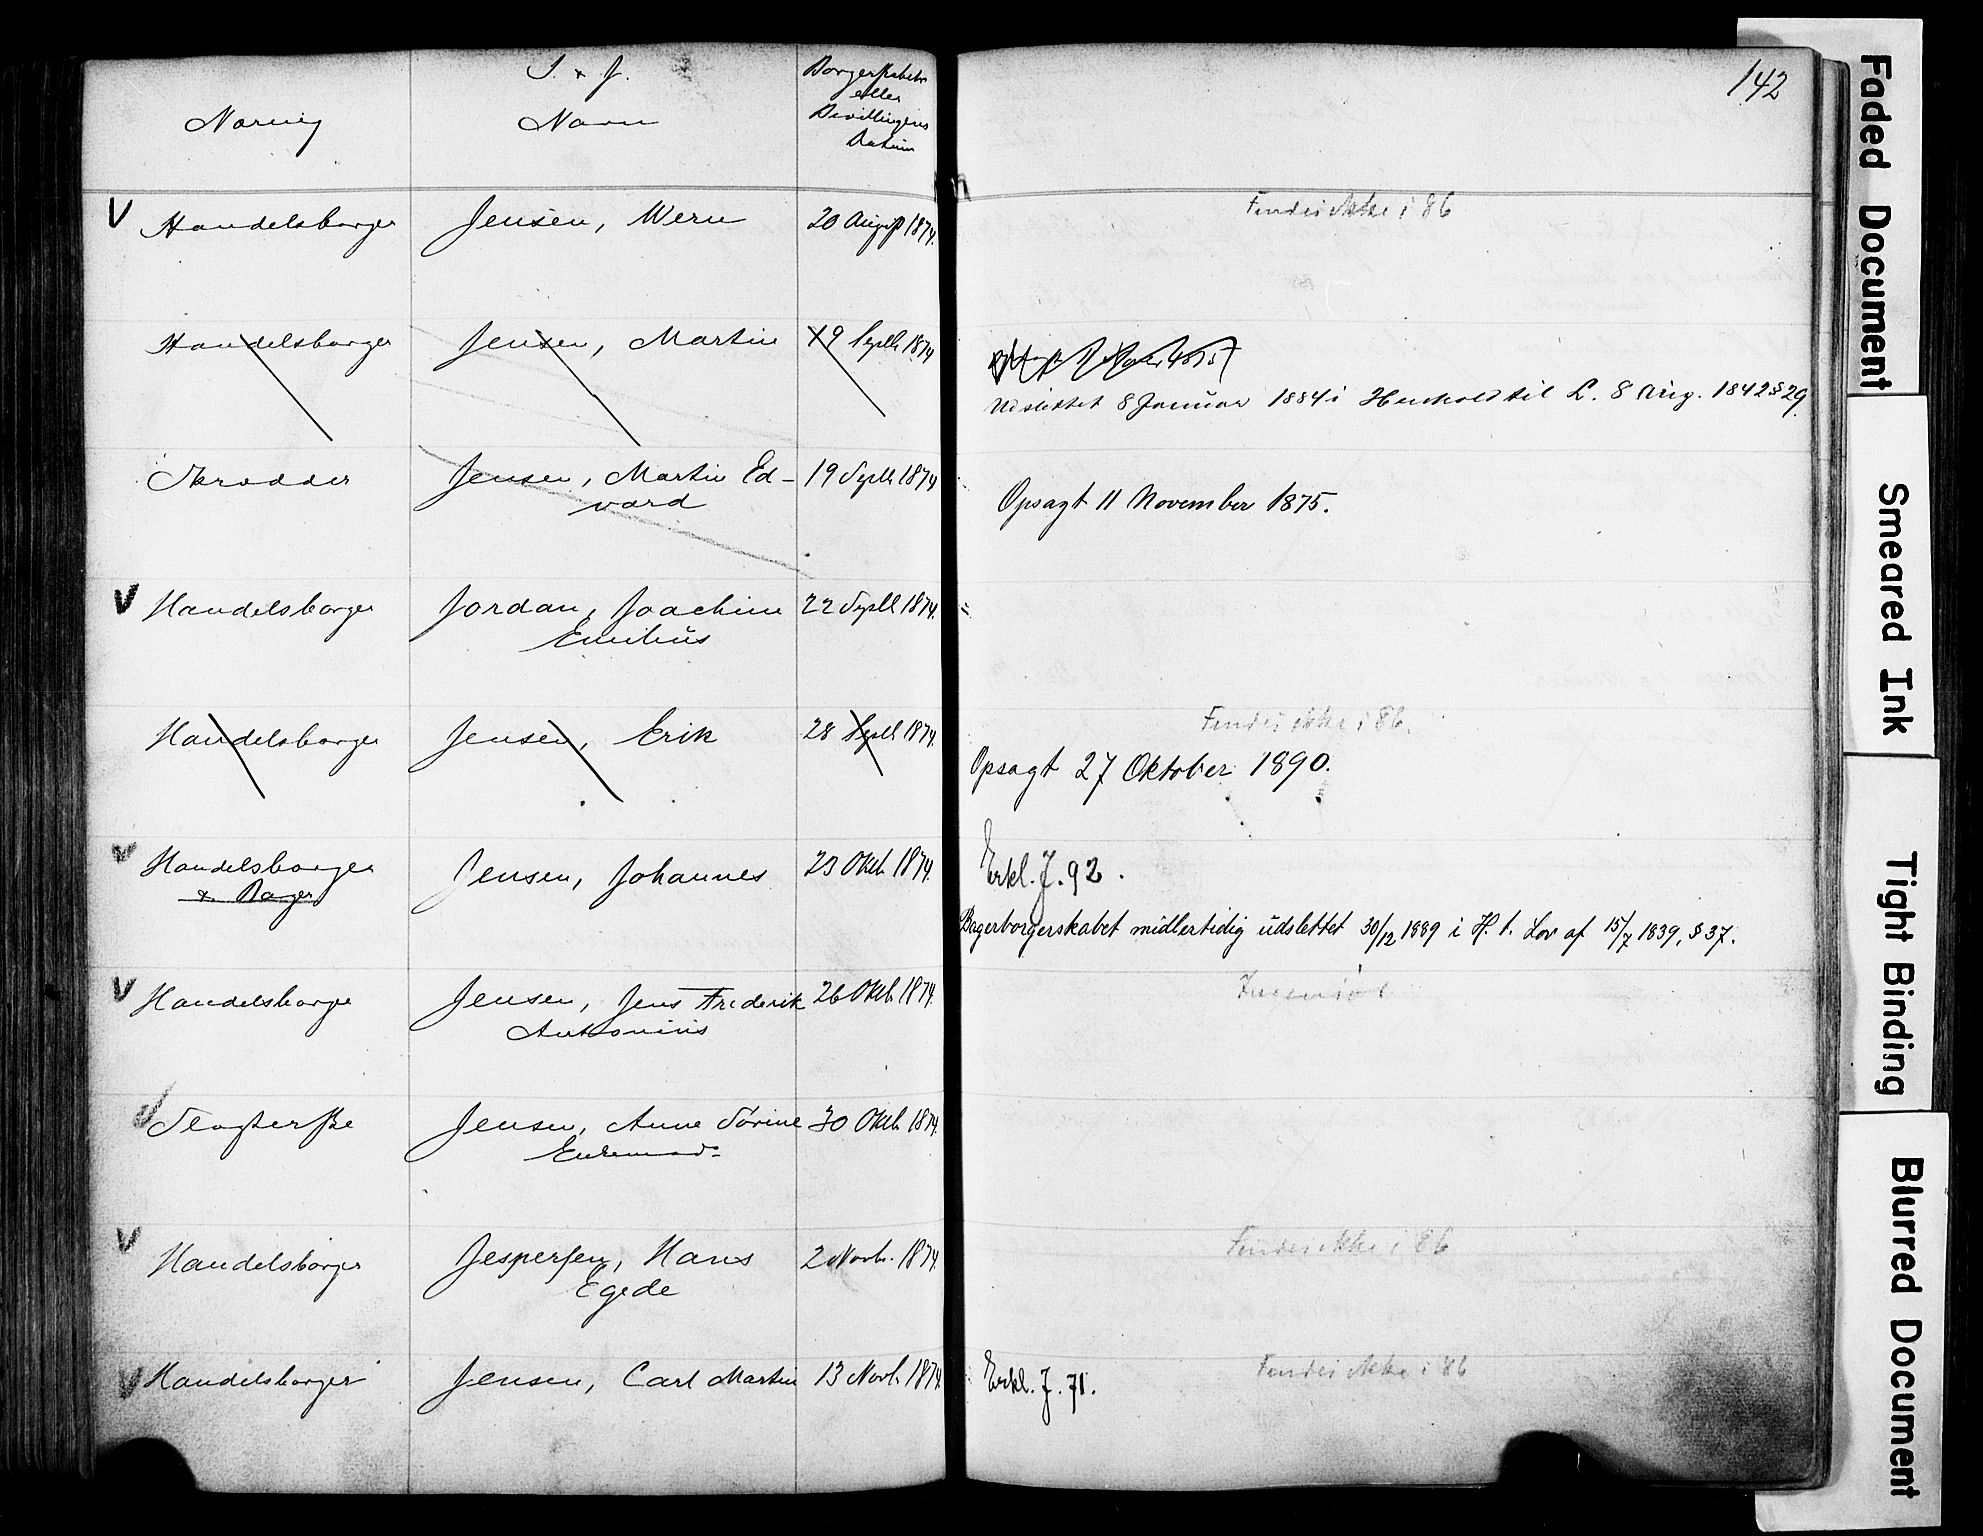 I & J.
Næring
Navn
Borgerskabets
eller
Bevillingens
Datum
142
V Handelsborger Jensen, Wern 20 August 1874.
Findes ikke i 86
Handelsborger Jensen, Martin 19 Septb 1874
Udslettet 8 Januar 1884 i Henhold til L. 8 Aug. 1842 § 29.
Skrædder Jensen, Martin Ed- 19 Septb 1874
vard
Opsagt 11 November 1875.
V Handelsborger Jordan, Joachim 22 Septb 1874.
Emilius
Handelsborger Jensen, Erik 28 Septb 1874.
Findes ikke i 86.
Opsagt 27 Oktober 1890.
V Handelsborger Jensen, Johannes 23 Oktb. 1874.
& Bager
Erkl. J. 92.
Bagerborgerskabet midlertidig udslettet 30/12 1889 i H. t. Lov af 15/7 1839, § 37.
V Handelsborger Jensen, Jens Frederik 26 Oktb. 1874.
Anthonius
V Slagterske Jensen, Anne Sørine 30 Oktb. 1874.
V Handelsborger Jespersen, Hans 2 Novb. 1874.
Egede
Findes ikke i 86
V Handelsborger Jensen, Carl Martin 13 Novb. 1874.
Erkl. J. 71.
Findes ikke i 86
Faded Document
Smeared Ink
Tight Binding
Blurred Document